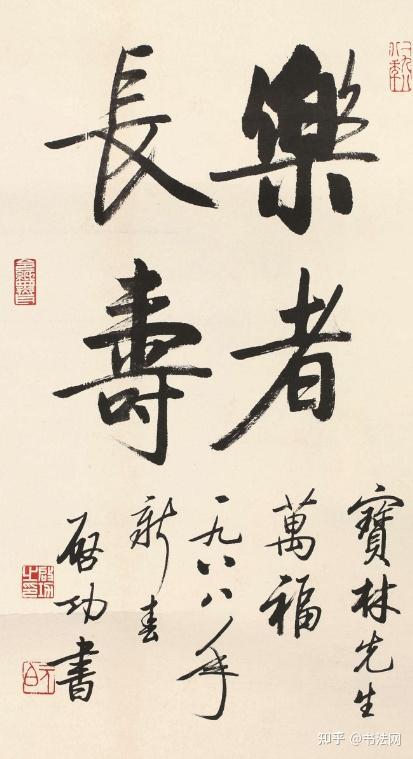 樂者
長壽
寶林先生
萬福
一九八八年
新春
啓功書
啓功之印
元白
知乎 @书法网